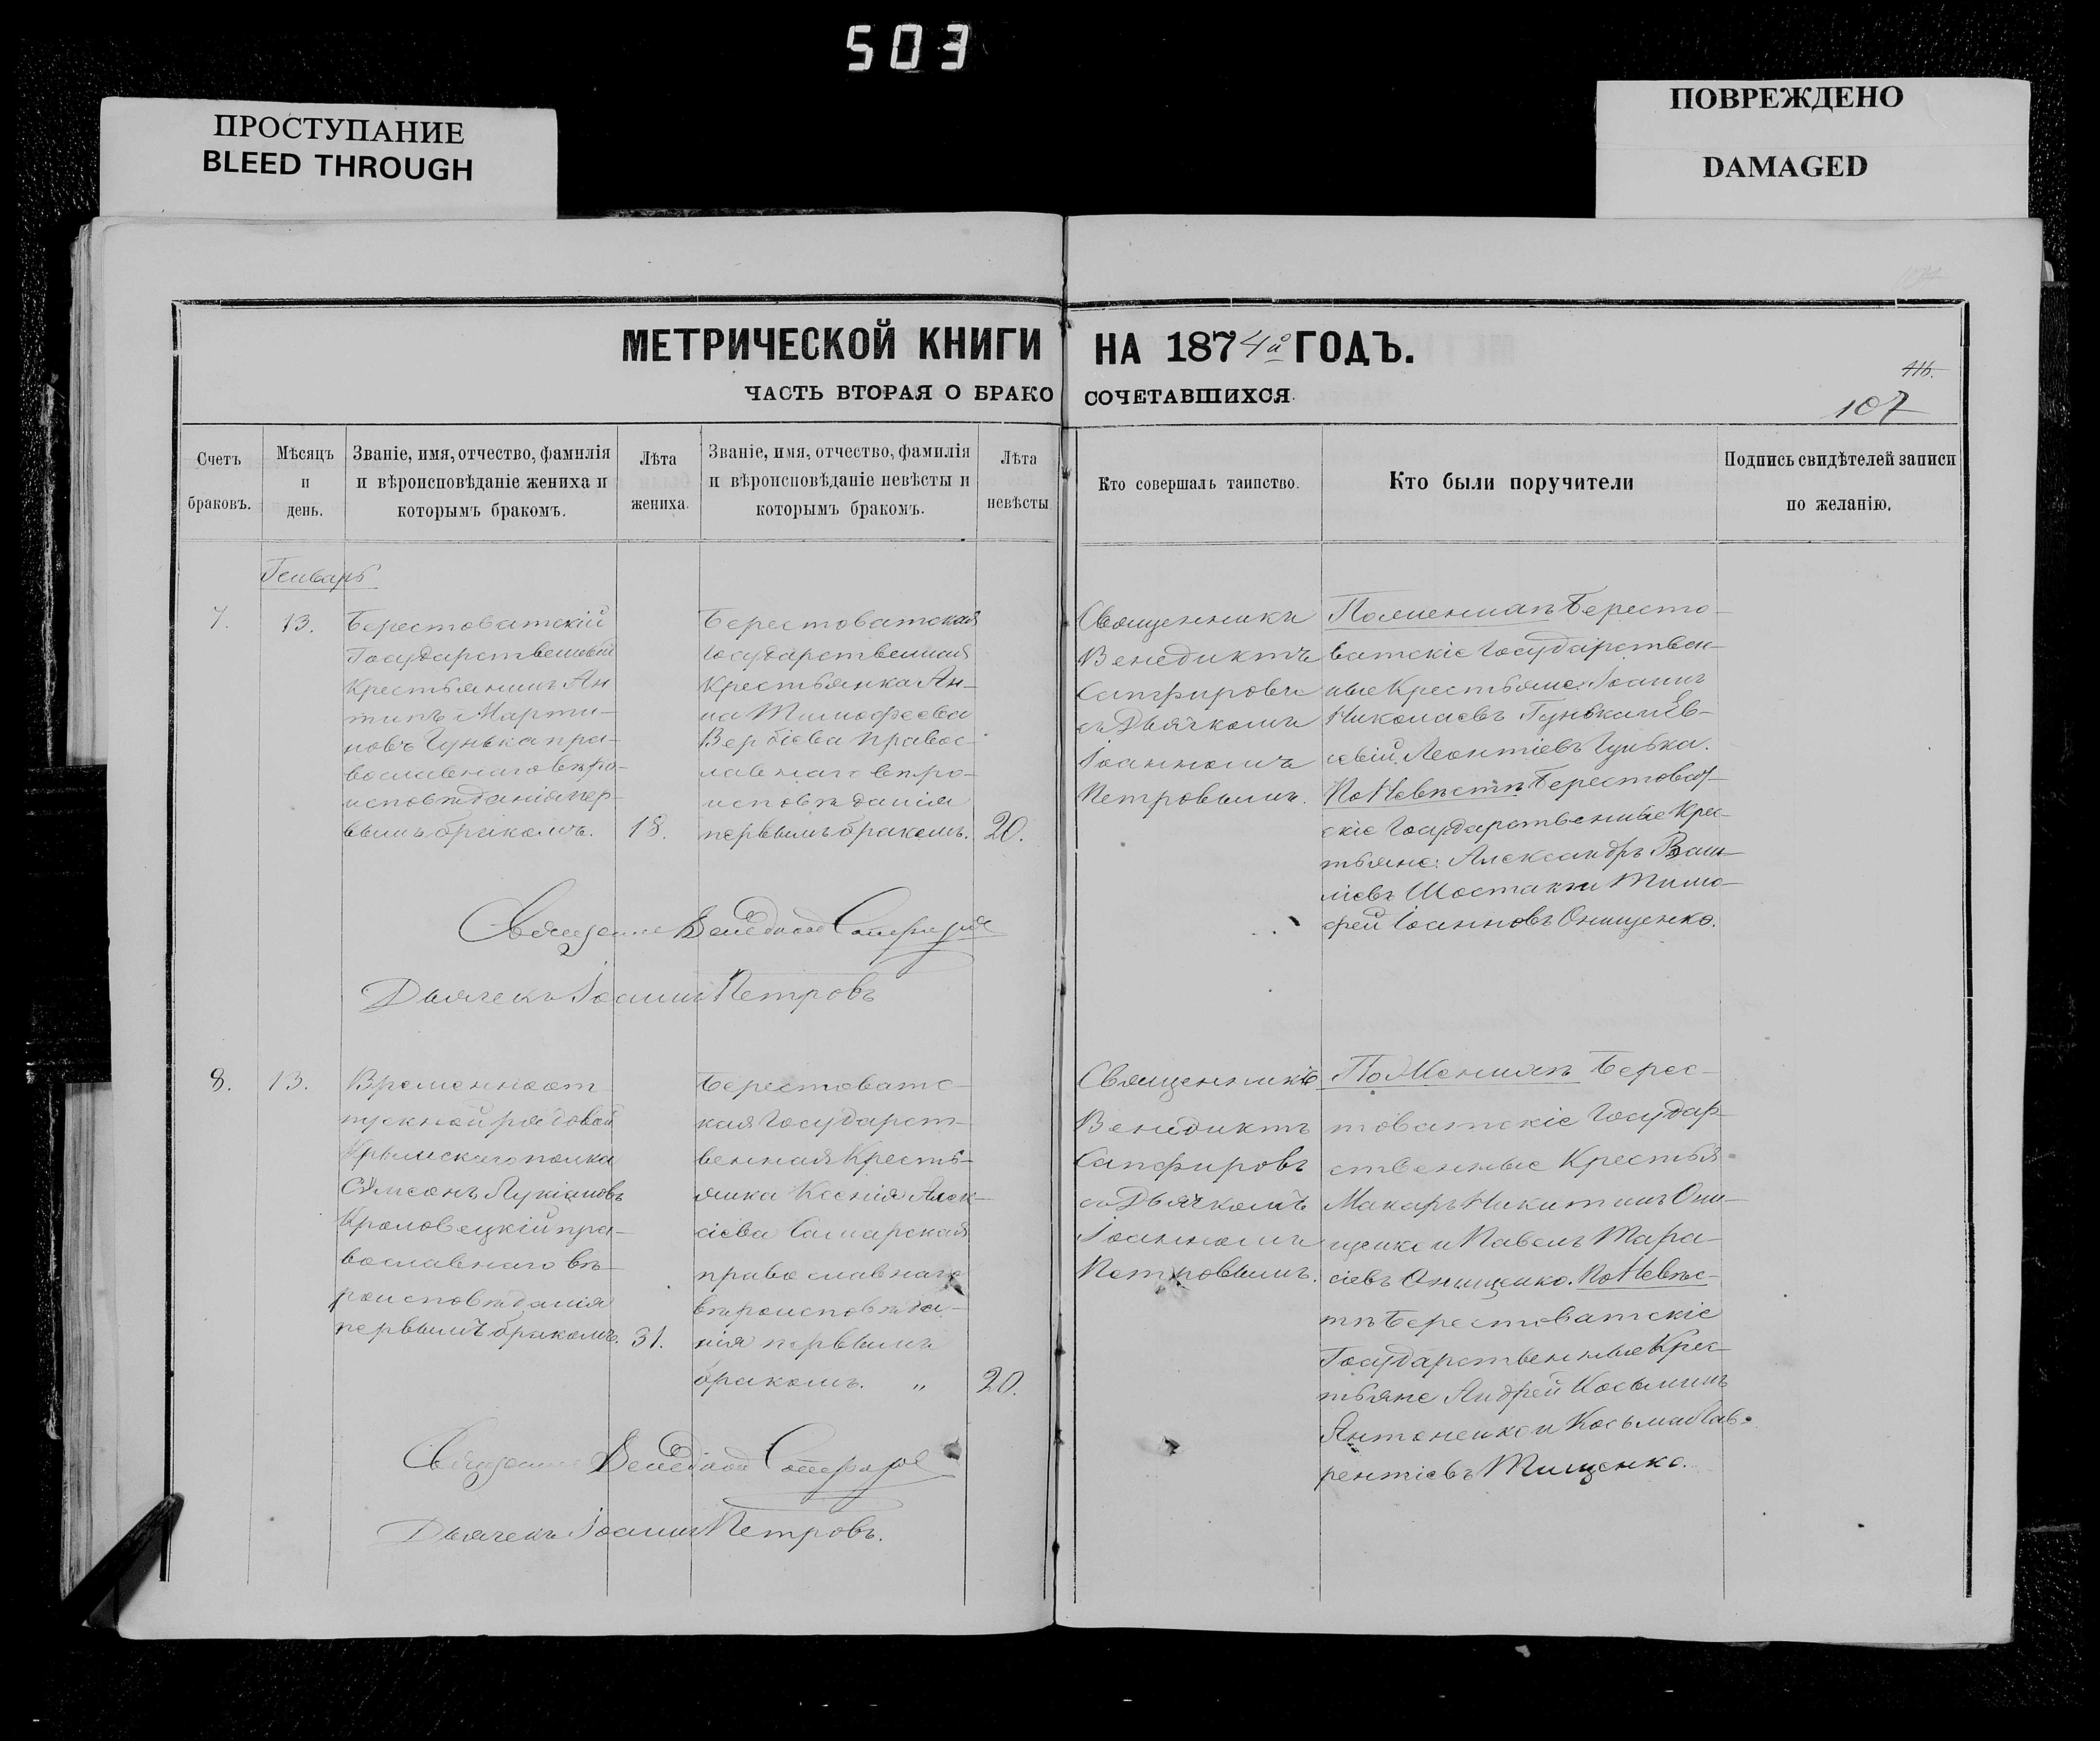 503
ПРОСТУПАНИЕ
BLEED THROUGH
ПОВРЕЖДЕНО
DAMAGED
МЕТРИЧЕСКОЙ КНИГИ НА 1874й ГОДЪ.
ЧАСТЬ ВТОРАЯ О БРАКОСОЧЕТАВШИХСЯ.
116.
107
Счетъ
браковъ.
Мѣсяцъ
и
день.
Званіе, имя, отчество, фамилія
и вѣроисповѣданіе жениха и
которымъ бракомъ.
Лѣта
жениха.
Званіе, имя, отчество, фамилія
и вѣроисповѣданіе невѣсты и
которымъ бракомъ.
Лѣта
невѣсты
Кто совершалъ таинство.
Кто были поручители
Подпись свидѣтелей записи
по желанію.
Генварь
7.
13.
Берестоватскій
Государственный
Крестьянинъ Ан
типъ Марти-
новъ Гунька пра-
вославнаго вѣро-
исповѣданія пер-
вымъ бракомъ.
18.
Берестоватская
Государственная
Крестьянка Ан-
на Тимофеева
Вербіева правос-
лавнаго вѣро-
исповѣданія
первымъ бракомъ.
20.
Священникъ
Венедиктъ
Сапфировъ
съ Дьячкомъ
Іоанномъ
Петровымъ.
По женихѣ Бересто-
ватскіе Государствен-
ные Крестьяне: Іоаннъ
Николаевъ Гунька и Ев-
севій Леонтіевъ Гунька.
По Невѣстѣ Берестоват-
скіе Государственные Крес-
тьяне: Александръ Васи-
ліевъ Шостакъ и Тимо-
фей Іоанновъ Онищенко.
Священникъ Венедиктъ Сапфировъ
Дьячекъ Іоаннъ Петровъ
8.
13.
Временноот
пускной рядовой
Крымскаго полка
Симеонъ Лукіановъ
Кроловецкій пра-
вославнаго вѣ-
роисповѣданія
первымъ бракомъ.
31.
Берестоватс-
кая Государст-
венная Кресть-
янка Ксенія Алек-
сіева Самарская
православнаго
вѣроисповѣда-
нія первымъ
бракомъ. "
20.
Священникъ
Венедиктъ
Сапфировъ
съ Дьячкомъ
Іоанномъ
Петровымъ.
По Женихѣ Берес-
товатскіе Государ-
ственные Крестья-
Макаръ Никитинъ Они-
щенко и Павелъ Тара-
сіевъ Онищенко. По Невѣс-
тѣ Берестоватскіе
Государственные Крес-
тьяне Андрей Косьминъ
Антоненко и Косьма Лав-
рентіевъ Тищенко.
Священникъ Венедиктъ Сапфировъ
Дьячекъ Іоаннъ Петровъ.